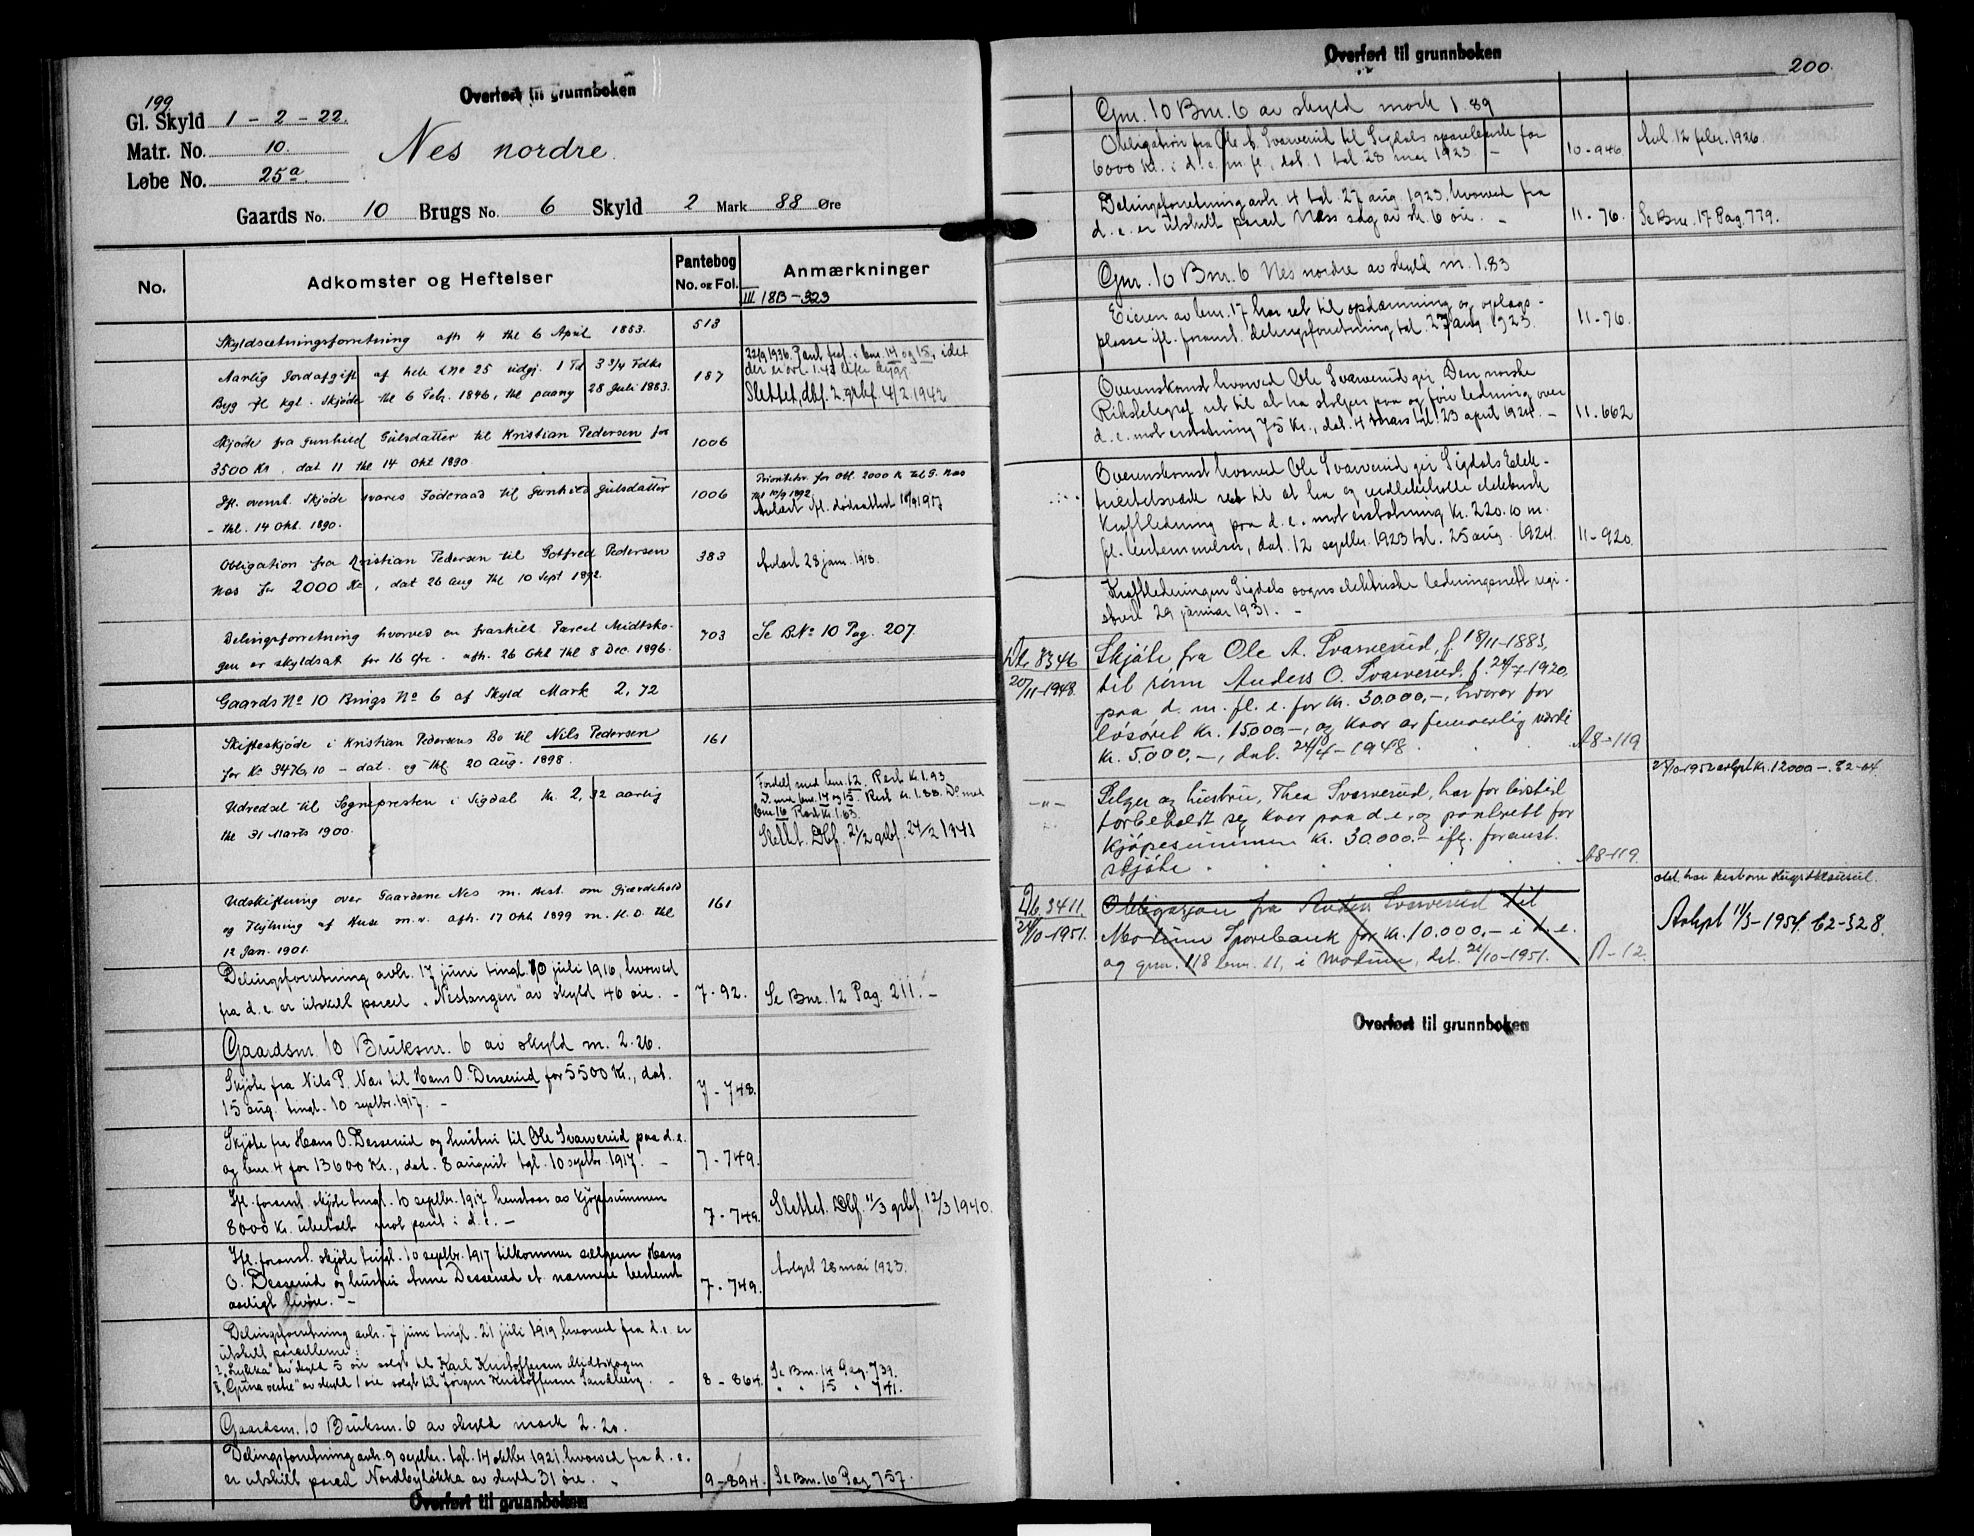 199
Overført til grunnboken
Gl. Skyld 1 - 2 - 22.
Matr. No. 10.
Løbe No. 25a.
Nes nordre.
Gaards No. 10 Brugs No. 6 Skyld 2 Mark 88 Øre
No.
Adkomster og Heftelser
Pantebog
No. og Fol.
Anmærkninger
III 18B - 323
Skyldsætningsforretning afh 4 thl 6 April 1883. 513
Aarlig Jordafgift af hele LNo 25 udgj. 1 Td 3 3/4 Fdkr
Byg fl kgl. Skjøde thl 6 Febr. 1846, thl paany 28 Juli 1883. 187
22/9 1936. Pant fraf. i bnr. 14 og 15, idet
Slettet, dbf. 2. grbf. 4/2. 1942
Skjøde fra Gunhild Gulsdatter til Kristian Pedersen for
3500 Kr, dat 11 thl 14 Okt 1890. 1006
Ifl. ovenst. Skjøde svares Føderaad til Gunhild Gulsdatter
- thl. 14 Okt. 1890. 1006
Prioritetsv. for Obl. 2000 K til G. Næs
thl 10/9 1892
Avlæst ifl. dødsattest
Obligation fra Kristian Pedersen til Gotfred Pedersen
Næs for 2000 Kr, dat 26 Aug thl 10 Sept 1892. 383
Avlæst 28 jan. 1918.
Delingsforretning hvorved en fraskilt Parcel Midtsko-
gen er skyldsat for 16 Øre. afh. 26 Okt thl 8 Dec. 1896. 703
Se BNo 10 Pag. 207.
Gaards No 10 Brugs No 6 af Skyld Mark 2,72
Skifteskjøde i Kristian Pedersens Bo til Nils Pedersen
for Kr 3476,10 - dat. og thl 20 Aug. 1898. 161
Udredsel til Sognepresten i Sigdal Kr. 2,32 aarlig
thl 31 Marts 1900.
Fordelt med bnr. 12. Rest Kr. 1.93.
D. med bnr. 14 og 15. Rest Kr. 1.88. Do med
bnr 16 Rest Kr. 1.63.
Slettet. Dbf. 21/2 grbf. 24/2 1941
Udskiftning over Gaardene Nes m. Best. om Gjærdehold
og Flytning af Huse m.v. afh. 17 Okt 1899 m. H.O. thl
12 Jan. 1901. 161
Delingsforretning avh. 17 juni tingl. 10 juli 1916, hvorved
fra d.e. er utskilt parcel "Nestangen" av skyld 46 øre. - 7-92.
Se Bnr. 12 Pag. 211. -
Gaardsnr. 10 Bruksnr. 6 av skyld m. 2.26.
Skjøte fra Nils P. Næs til Hans O. Desserud for 5500 Kr., dat.
15 aug. tingl. 10 septbr. 1917. - 7-748.
Skjøte fra Hans O. Desserud og hustru til Ole Svarverud paa d.e.
og bnr 4 for 13600 Kr., dat. 8 august tgl. 10 septbr. 1917. - 7-749.
Ifl. foranst. skjøte tingl. 10 septbr. 1917 henstaar av kjøpesummen
8000 Kr. ubetalt mot pant i d.e. - 7-749.
Slettet. Dbf. 11/3 grbf. 12/3 1940.
Ifl. foranst. skjøte tingl. 10 septbr. 1917 tilkommer sælgeren Hans
O. Desserud og hustru Anne Desserud et nærmere bestemt
aarligt livøre. - 7-749.
Avlyst 28 mai 1923.
Delingsforretning avh. 7 juni tingl. 21 juli 1919, hvorved fra d.e. er
utskilt parcellerne:
I. "Lykka" av skyld 5 øre solgt til Karl Kristoffersen Midtskogen
II. "Gruna vestre" av skyld 1 øre solgt til Jørgen Kristoffersen Sandberg. - 8-864.
Se Bnr. 14 Pag. 739.
" " 15 " 741.
Gaardsnr. 10 Bruksnr. 6 av skyld mark 2.20.
Delingsforretning avh. 9 septbr. tgl. 14 oktbr 1921, hvorved fra d.e.
er utskilt parcel Nordbyløkka av skyld 31 øre. 9-894.
Se Bnr. 16 Pag 757.
Overført til grunnboken
Overført til grunnboken
200.
Gnr. 10 Bnr. 6 av skyld mark 1.89
Obligation fra Ole A. Svarverud til Sigdals sparebank for
6000 Kr. i d.e. m. fl., dat. 1 tgl 28 mai 1923. - 10-946.
Avl. 12 febr. 1926.
Delingsforretning avh. 4 tgl. 27 aug. 1923, hvorved fra
d.e. er utskilt parcel Næss sag av sk. 6 øre. - 11-76.
Se Bnr. 17 Pag. 779.
Gnr. 10 Bnr. 6 Nes nordre av skyld m. 1.83
Eieren av bnr. 17 har ret til opdæmning og oplags-
plasse ifl. foranst. delingsforretning tgl. 27 aug. 1923. 11-76.
Overenskomst hvorved Ole Svarverud gir Den norske
Rikstelegraf ret til at ha stolper paa og føre ledning over
d.e. mot erstatning 75 Kr., dat. 4 mars tgl. 23 april 1924. - 11-662
Overenskomst hvorved Ole Svarverud gir Sigdals Elek-
tricitetsverk ret til at ha og vedlikeholde elektrisk
Kraftledning paa d.e. mot erstatning Kr. 220.10 m.
fl. bestemmelser, dat. 12 septbr. 1923 tgl. 25 aug. 1924. 11-920.
Kraftledningen Sigdals sogns elektriske ledningsnett regi-
strert 29 januar 1931. -
Db. 8346
20/11-1948.
Skjøte fra Ole A. Svarverud, f. 18/11-1883,
til sønn Anders O. Svarverud, f. 24/7-1920,
paa d. m. fl. e. for Kr. 30.000,-, hvorav for
løsøret Kr. 15000,-, og kaar av femaarlig verdi
Kr. 5.000,-, dat. 24/4-1948. A8-119
-"-
Selger og hustru, Thea Svarverud, har for livstid
forbeholdt seg kaar paa d.e. og panterett for
kjøpesummen Kr. 30.000.- ifl. foranst.
skjøte. A8-119.
24/10-1952 avlyst Kr. 12000.-. B2-64
Db. 3411
24/10-1951.
Obligasjon fra Anders Svarverud til
Modum Sparebank for Kr. 10.000,- i d.e.
og gnr. 118 bnr. 11, i Modum, dat. 22/10-1951. A-12.
Avlyst 11/3-1954. C2-328.
Overført til grunnboken